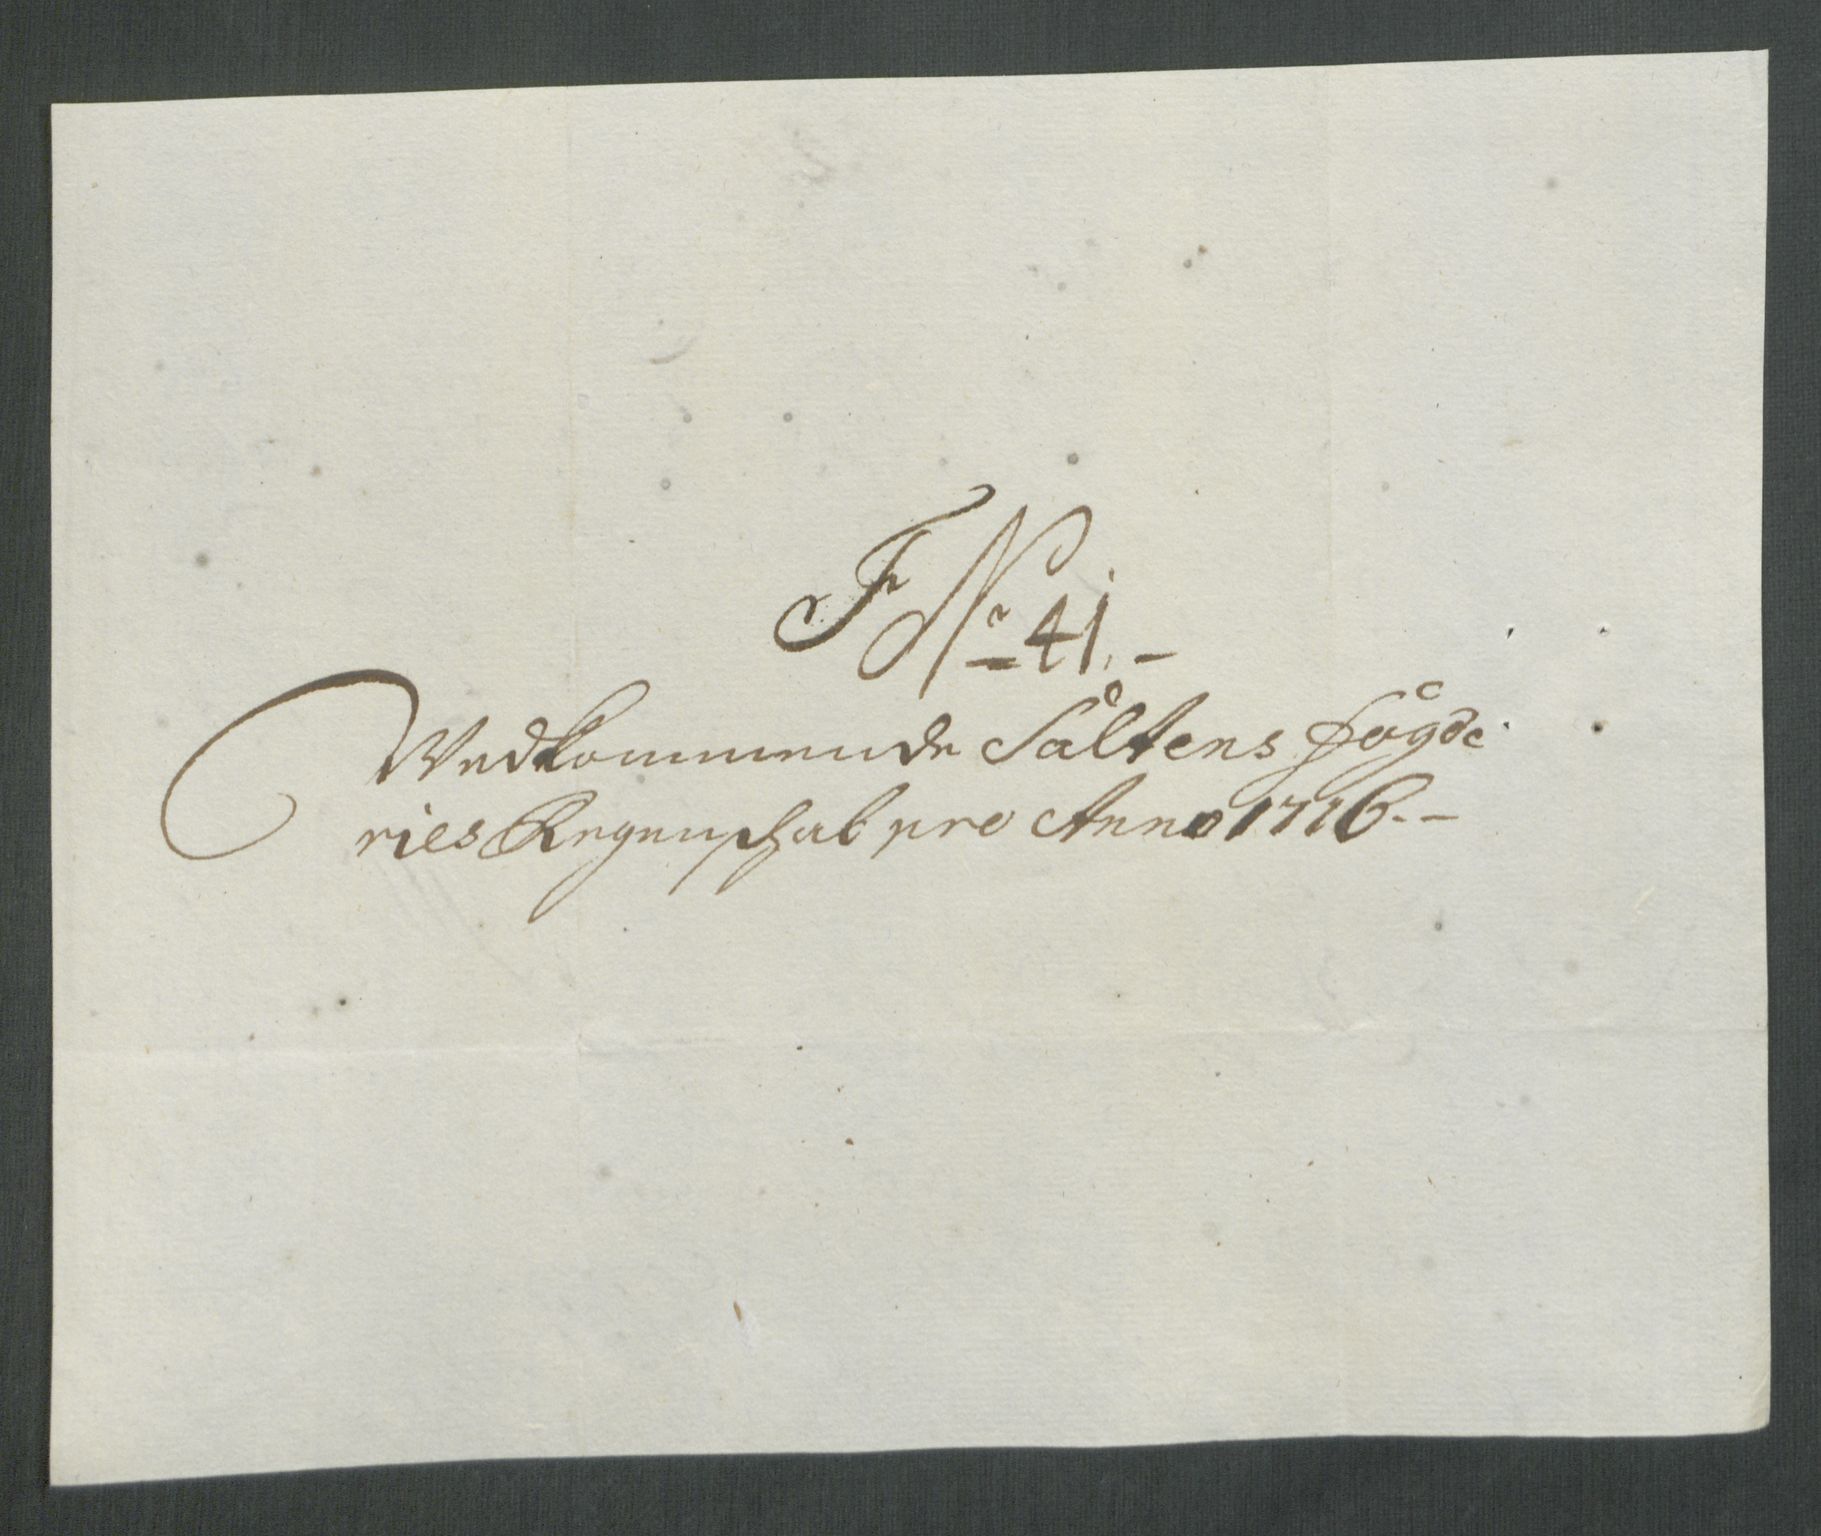 F No 41.-
Vedkommende Saltens fögde
ries Regenskab pro Anno 1716.--